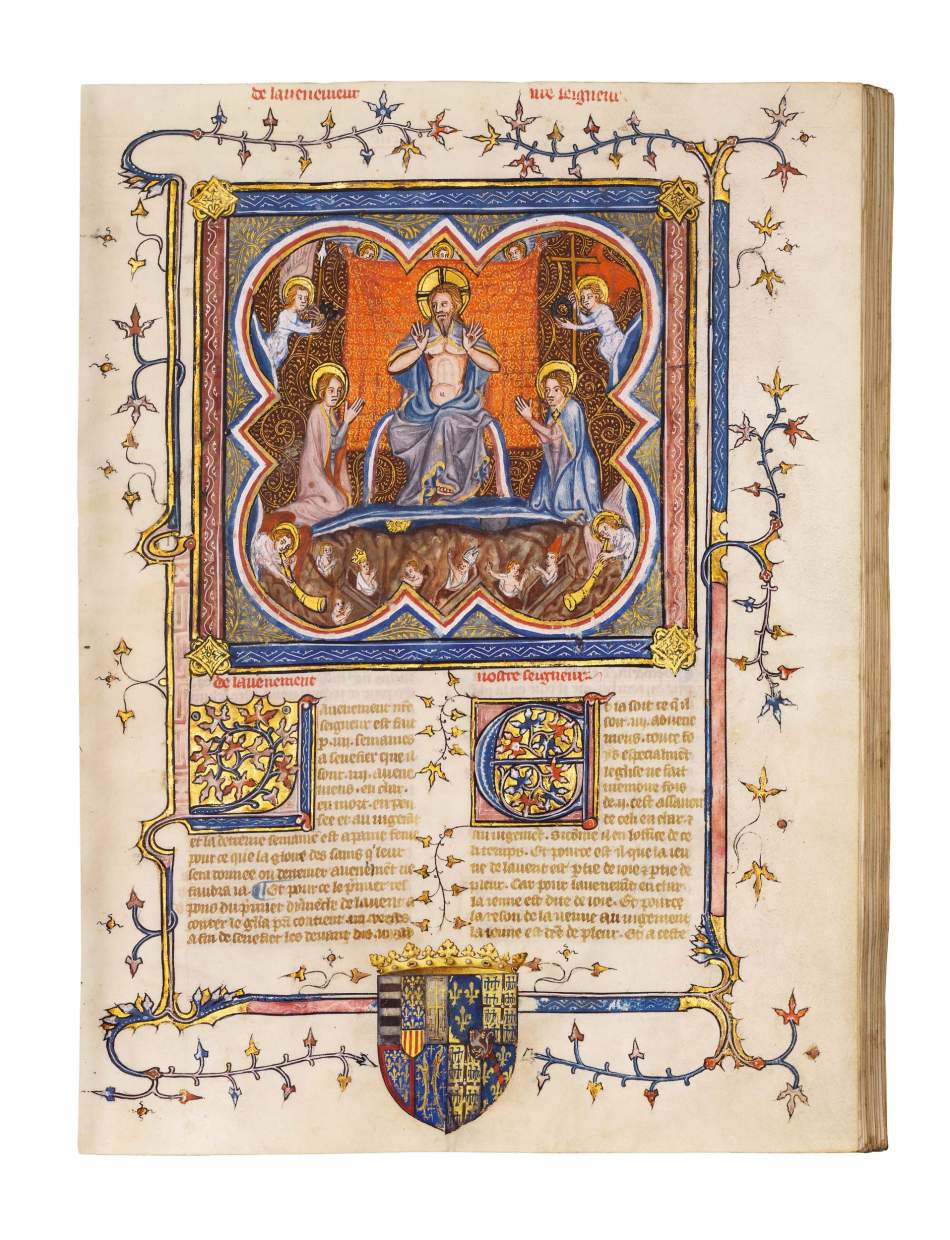 de lauenement nre seigneur
de lauenement
Lauenement nre
seigneur est fait
p. iiij. semaines
a senefier que il
sont. iiij. auene
mens. en char.
en mort. en pen
see et au iugemt
et la derreine semaine est a paine fenie
pour ce que la gloire des sains q̃ leur
sera donnee ou derreiner auenemēt ne
faudra ia. Et pour ce le pimier res
pons du pmier dimēche de lauent a
conter le gl̃ia pr̃i contient. iiij. verses
a fin de senefier les deuant dis. iiij. au
nostre seigneur
Et ia soit ce q̃ il
soit. iiij. aduene
mens. toute fo
ys especialmēt
leglise ne fait
memoire fors
de. ij. cest assauoir
de celi en char &
au iugemēt. si cōme il en loffice de ce
a temps. Et pour ce est il que la ieu
ne de lauent est p̃tie de ioie & p̃tie de
pleur. Car pour lauenemt en char
la ieune est dite de ioie. Et pour ce
la reson de la uenue au iugement
la ieune est dite de pleur. Et a ceste